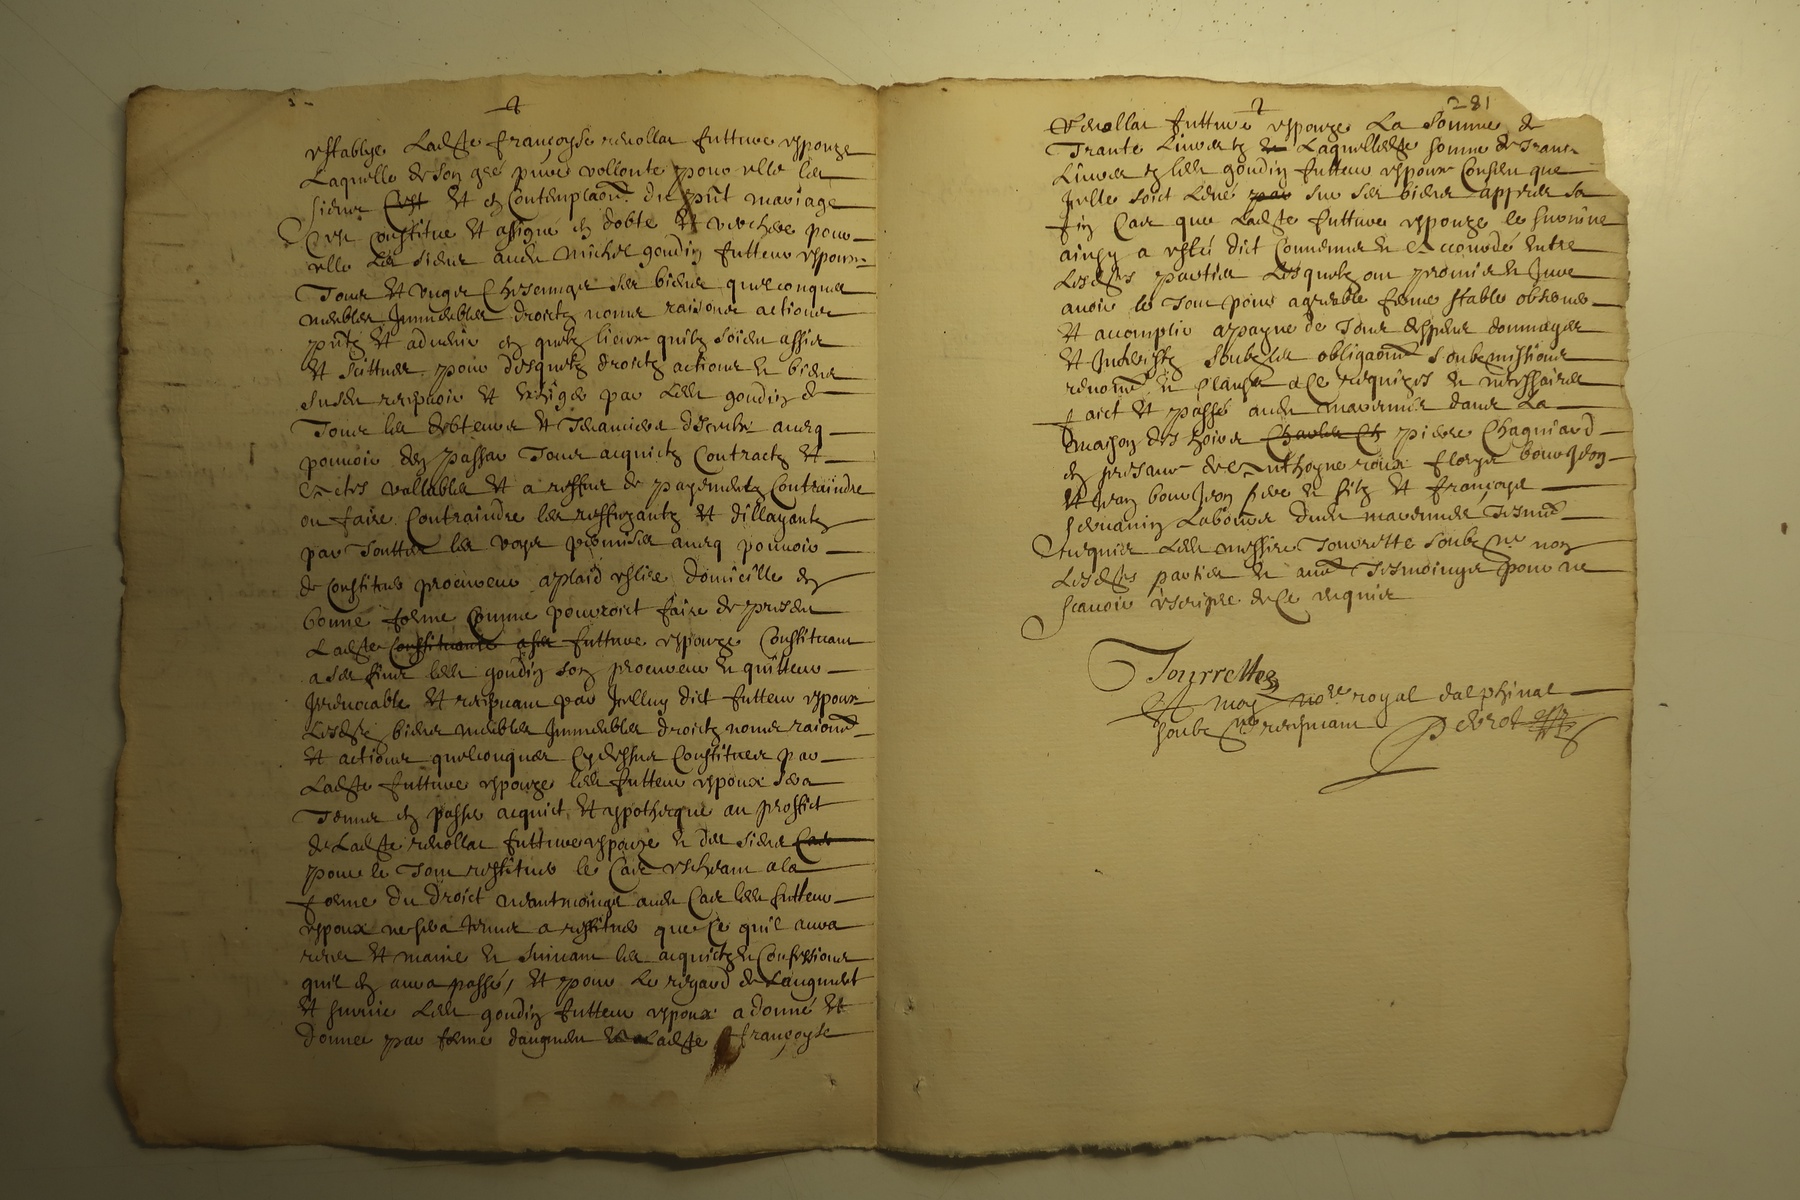 establye Ladte françoyse revollat futture espouze
Laquelle de son gré pure vollonte pour elle les
siens Et en Contemplaon du pnt mariage
C'est constitue Et assigne en dobte Et verchere pour
elle les siens audt michel goudin futteur espoux
Tous Et ungs Chescungs ses biens quelconques
meubles Immeubles droictz noms raisons actions
pntz Et advenir en quelz lieux quilz soient assis
Et scittues pour desquelz droictz actions et biens
Susdt recepvoir Et exhiger par Ledt goudin de
Tous les debteurs Et Tenanciers diceulx avecq
pouvoir den passer Tous acquictz Contractz Et
actes vallables Et a reffuz de payementz Contraindre
ou faire Contraindre les reffuzantz Et dillayantz
par Touttes les voyes permises avecq pouvoir
de Constituer procureur a plaid eslire domicille en
bonne forme Comme pourroict faire de present
Ladte Constituante futture espouze Constituant
a ses fins ledt goudin son procureur et quitteur
Irrevocable Et recepvant par Icelluy dict futteur espoux
Lesdts biens meubles Immeubles droictz noms raisons
Et actions quelconques Cydessus Constitues par
Ladte futture espouze ledt futteur espoux sera
Tenu en passer acquict Et ypotheque au proffict
de Ladte revollat futture espouze et des siens
pour le Tout restituer le Cas escheant a la
forme du droict neantmoings audt Cas ledt futteur
espoux ne sera tenu a restituer que Ce quil aura
receu Et manie et suivant les acquictz et Confessions
quil en aura passé, Et pour Le regard de Laugment
Et survie Ledt goudin futteur espoux a donné Et
donne par forme daugment a Ladte françoyse
281
Revollat futture espouze La somme de
Trante Livres et Laquelledte somme de Trante
Livres Ledt goudin futteur espoux Consent que
Icelle soict Levé par sur ses biens appres sa
fin Cas que Ladte futture espouze le survive
ainsy a esté dict Convenu et accourdé entre
Lesdtes parties Lesquelz ont promis et Juré
avoir le Tout pour agreable ferme stable observer
Et accomplir a payne de Tous despens dommages
Et Intherestz soubz les obligaons soubzmissions
renonon et clauses a Ce requizes et necessaires
faict Et passé audt dans La
maison des hoirs pierre Chaguiard
en presance de Anthoyne roux bourjon
Et Jean bourjon pere et filz Et françoys
Laboureur dudt Tesmoings
requis Ledt messire Tourrette soubzne non
Lesdtes parties et aues Tesmoings pour ne
scavoir escripre de Ce requis
Tourrettes
Et moy nore royal dalphinal
soubzne recepvant Perrot